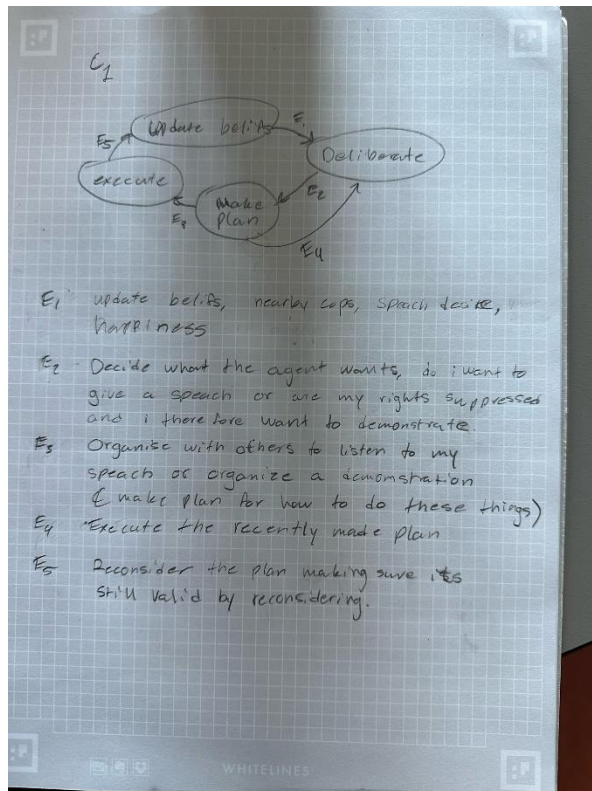 C1
update belifs
E1
Deliberate
E5
execute
E2
make
plan
E3
E4
E1 update belifs, nearby cops, speach desire,
happiness
E2 Decide what the agent wants, do i want to
give a speach or are my rights suppressed
and i therefore want to demonstrate.
E3 Organise with others to listen to my
speach or organize a demomstration
(make plan for how to do these things)
E4 Execute the recently made plan
E5 Reconsider the plan making sure its
still valid by reconsidering.
WHITELINES